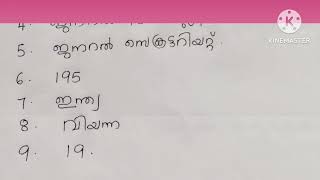 5. ജനറൽ സെക്രട്ടറിയറ്റ്.
6. 195
7. ഇന്ത്യ
8. വിയന്ന
9. 19.
KINEMASTER